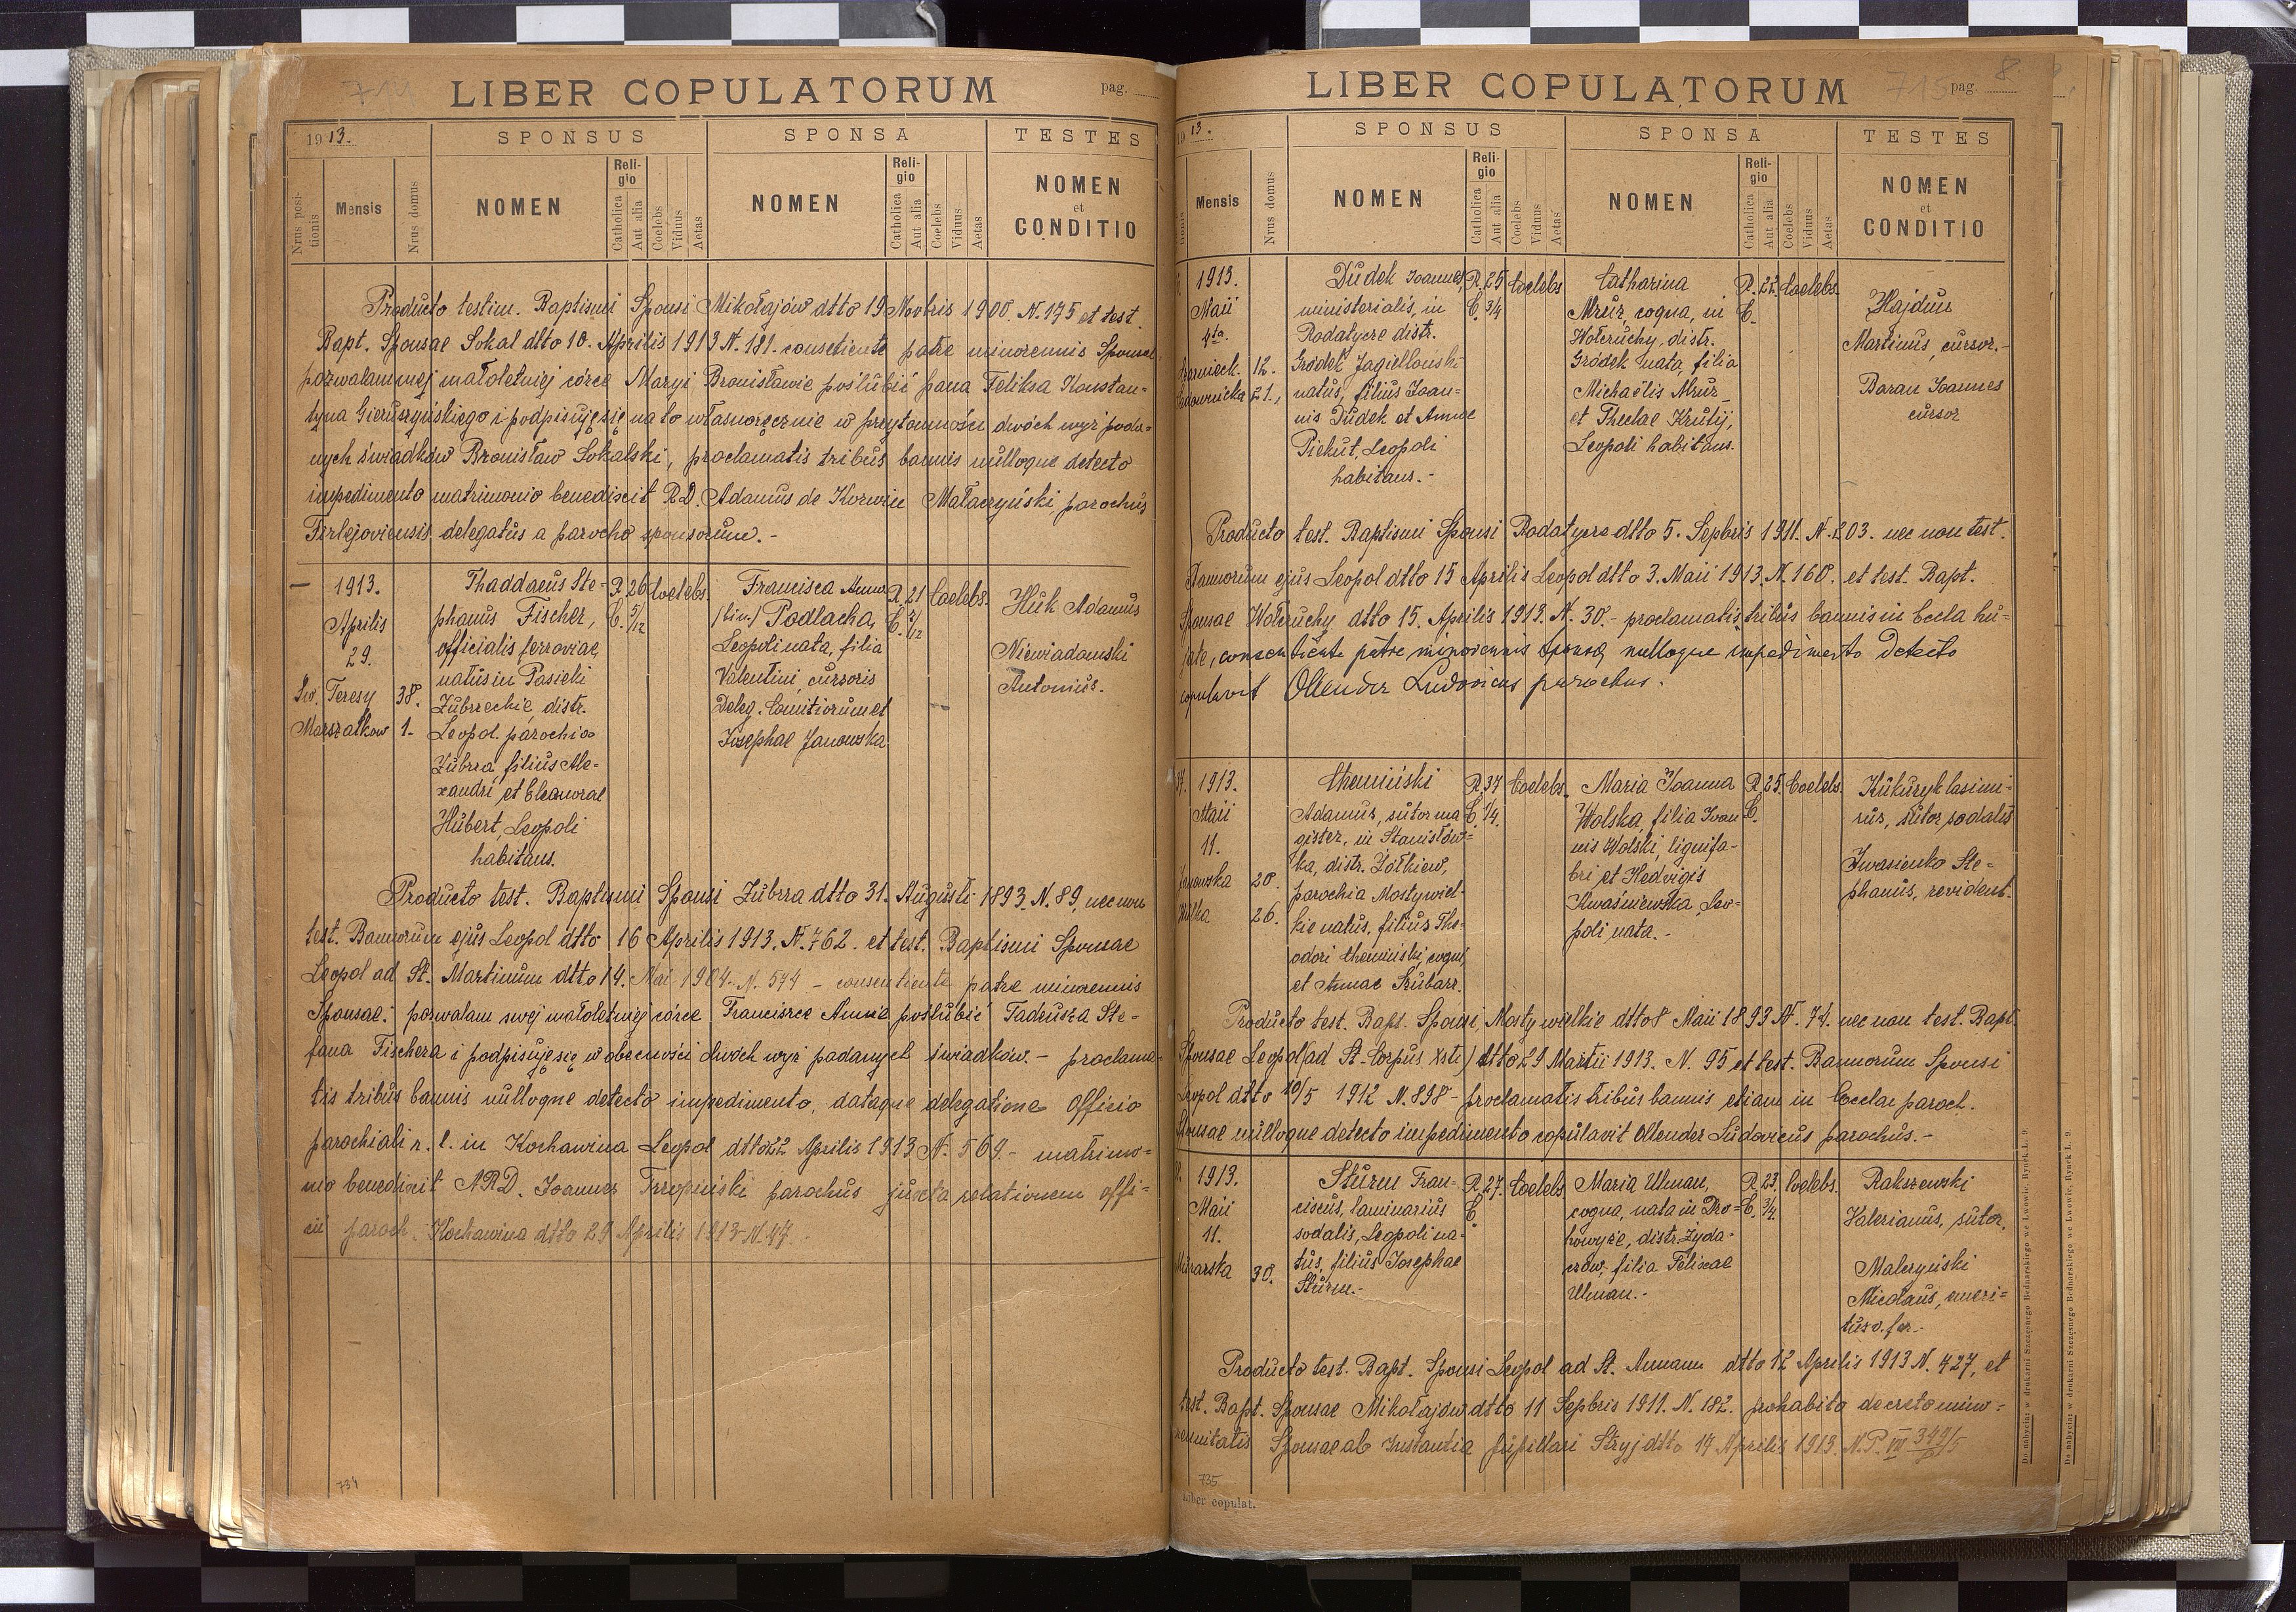 LIBER COPULATORUM
pag.
1913.
SPONSUS
SPONSA
TESTES
Nrus positionis
Mensis
Nrus domus
NOMEN
Religio
Catholica
Aut alia
Coelebs
Viduus
Aetas
NOMEN
Religio
Catholica
Aut alia
Coelebs
Viduus
Aetas
NOMEN
et
CONDITIO
Producto testim. Baptismi Sponsi Mikołajów dtto 19 Novbris 1900. N. 175 et test.
Bapt. Sponsae Sokal dtto 10. Aprilis 1913 N. 181. consetiente patre minorennis Sponsae
pozwalam mej małoletniej córce Maryi Bronisławie poślubić pana Feliksa Konstan-
tyna Gieruszyńskiego i podpisuję się na to własnoręcznie w przytomności dwóch wyż poda-
nych świadków Bronisław Sokalski, proclamatis tribus bannis nulloque detecto
impedimento matrimonio benedixit R.D. Adamus de Korwin Małaczyński, parochus
Firlejoviensis delegatus a parocho sponsorum.-
— 1913.
Aprilis
29.
Św. Teresy 38.
Marszałkow 1-
Thaddaeus Ste-
phanus Fischer,
officialis ferroviae,
natus in Pasieki
Zubrzeckie, distr.
Leopol. parochia
Zubrza, filius Ale-
xandri et Eleanorae
Hubert, Leopoli
habitans.
R. 26 Coelebs.
C. 5/12
Francisca Anna
/bin./ Podlacha,
Leopoli nata, filia
Valentini, cursoris
Deleg. Comitiorum et
Josephae Janowska
R. 21 Coelebs.
C. 7/12
Huk Adamus
Niewiadomski
Antonius.
Producto test. Baptismi Sponsi Zubrza dtto 31. Augusti 1893. N. 89, nec non
test. Bannorum ejus Leopol dtto 16 Aprilis 1913. N. 762. et test. Baptismi Sponsae
Leopol ad St. Martinum dtto 14. Mai 1904. N. 574 - consentiente patre minorennis
Sponsae: pozwalam swej małoletniej córce Francisce Annie poślubić Tadeusza Ste-
fana Fischera i podpisuję się w obecności dwóch wyż podanych świadków. - proclama-
tis tribus bannis nulloque detecto impedimento, dataque delegatione Officio
parochiali r. l. in Kochawina Leopol dtto 22 Aprilis 1913 N. 569. - matrimo-
nio benedixit A.R.D. Joannes Trzopiński parochus juxta relationem offi-
cii paroch. Kochawina dtto 29 Aprilis 1913 N. 47.-
734
LIBER COPULATORUM
715
pag. 8.
1913.
SPONSUS
SPONSA
TESTES
Mensis
Nrus domus
NOMEN
Religio
Catholica
Aut alia
Coelebs
Viduus
Aetas
NOMEN
Religio
Catholica
Aut alia
Coelebs
Viduus
Aetas
NOMEN
et
CONDITIO
1913.
Maii
4ta.
12.
21.
Dudek Joannes,
ministerialis, in
Rodatycze distr.
Gródek Jagiellonski
natus, filius Joan-
nis Dudek et Annae
Piekut, Leopoli
habitans.-
R. 25 Coelebs
C. 3/4
Catharina
Mruz, coqua, in
Wołczuchy, distr.
Gródek nata, filia
Michaëlis Mruz
et Theclae Krutij,
Leopoli habitans.
R. 22. Coelebs.
C.
Hajduk
Martinus, cursor.-
Baran Joannes
cursor
Producto test. Baptismi Sponsi Rodatycze dtto 5. Sepbris 1911. N. 203. nec non test.
Bannorum ejus Leopol dtto 15 Aprilis Leopol dtto 3. Maii 1913. N. 160. et test. Bapt.
Sponsae Wołczuchy dtto 15. Aprilis 1913. N. 30.- proclamatis tribus bannis in Eccla hu-
jate, consentiente patre minorennis sponsae nulloque impedimento detecto
copulavit Ollender Ludovicus parochus.
1913.
Maii
11.
Janowska 20.
Wilka 26.
Chemiński
Adamus, sutor ma
gister, in Stanisłów-
ka, distr. Żółkiew,
parochia Mosty wiel-
kie natus, filius The-
odori Chemiński, coqui,
et Annae Szubarz.
R. 37 Coelebs.
C. 1/4.
Maria Joanna
Wolska, filia Joan
nis Wolski, lignifa-
bri et Hedvigis
Kwaśniewska, Leo-
poli nata.-
R. 25. Coelebs.
C.
Kukuryk Casimi-
rus, sutor sodalis
Iwasienko Ste-
phanus, revident.
Producto test. Bapt. Sponsi, Mosty wielkie dtto 8 Maii 1893 N. 74. nec non test. Bapt.
Sponsae Leopol /ad St. Corpus Xsti/ dtto 29 Martii 1913. N. 95 et test. Bannorum Sponsi
Leopol dtto 10/5 1912 N. 898 - proclamatis tribus bannis etiam in Ecclae paroch.
Sponsae nulloque detecto impedimento copulavit Ollender Ludovicus parochus.-
1913.
Maii
11.
Murarska 30.
Sturm Fran-
ciscus, laminarius
sodalis, Leopoli na-
tus, filius Josephae
Sturm.-
R. 27. Coelebs
C.
Maria Ulman,
coqua, nata in Dro-
howyże, distr. Żyda-
czów, filia Felixae
Ulman.-
R. 23 Coelebs.
C. 3/4.
Rakszewski
Valerianus, sutor.
Malczyński
Nicolaus, emeri-
tus v. fer.-
Producto test. Bapt. Sponsi Leopol ad St. Annam dtto 12 Aprilis 1913 N. 427, et
test. Bapt. Sponsae Mikołajów dtto 11 Sepbris 1911. N. 182. prohabito decreto mino-
rennitatis Sponsae ab Instantia pupillari Stryj dtto 14 Aprilis 1913. N.P. VI
735
Liber copulat.
Do nabycia: w drukarni Szczęsnego Bednarskiego we Lwowie, Rynek L. 9.
Do nabycia: w drukarni Szczęsnego Bednarskiego we Lwowie, Rynek L. 9.